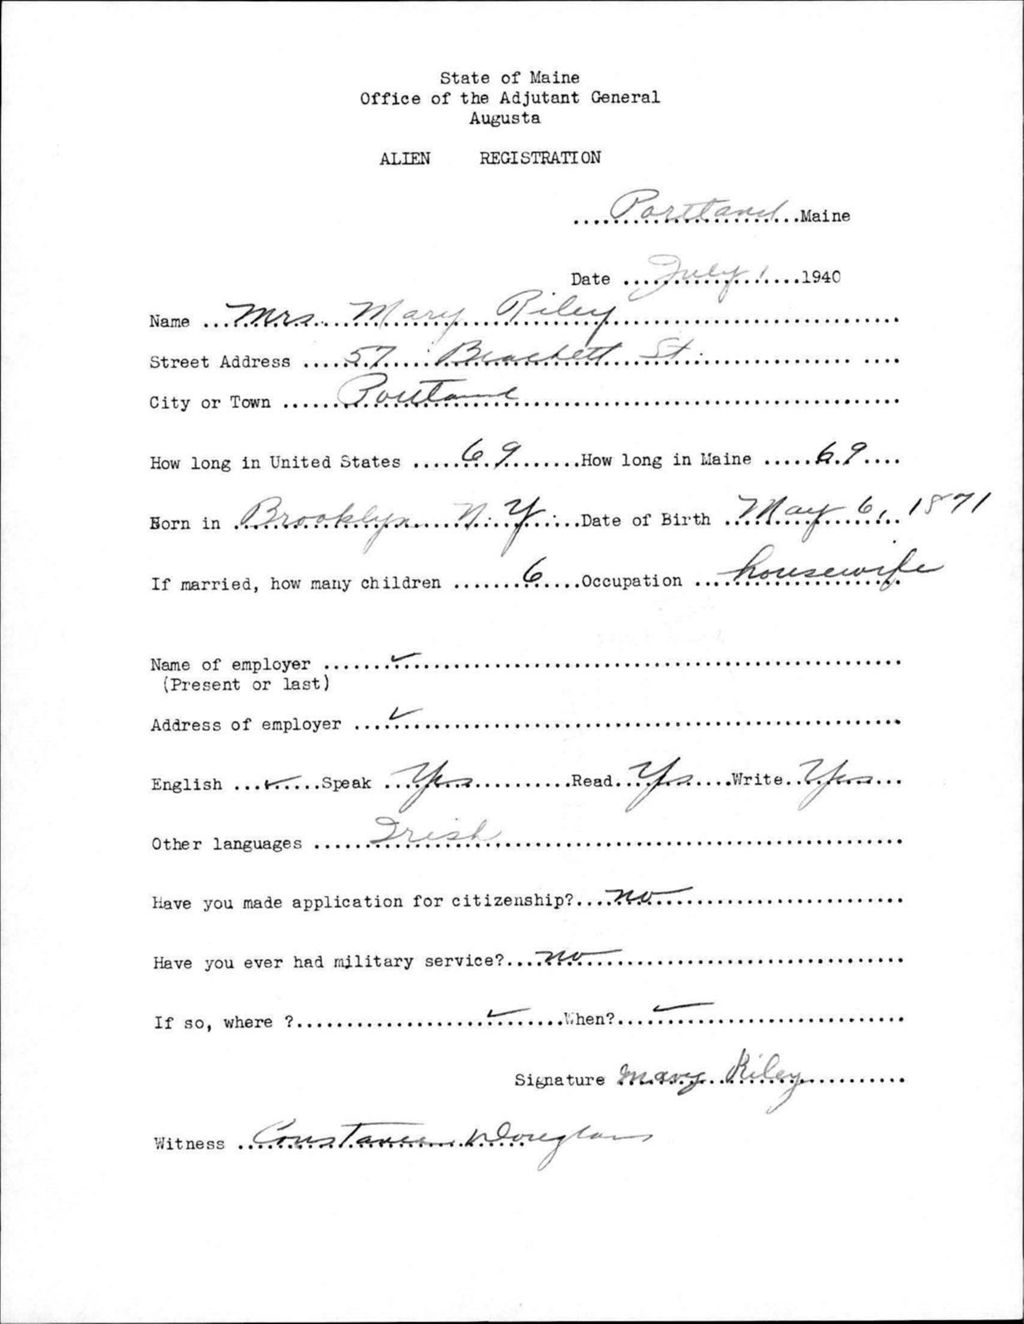 State of Maine
Office of the Adjutant General
Augusta
ALIEN REGISTRATION
Portland Maine
Date July 1 1940
Name Mrs. Mary Riley
Street Address 57 Brackett St.
City or Town Portland
How long in United States 69 How long in Maine 69
Born in Brooklyn N.Y. Date of Birth May 6, 1871
If married, how many children 6 Occupation housewife
Name of employer ✓
(Present or last)
Address of employer ✓
English ✓ Speak Yes Read Yes Write Yes
Other languages Irish
Have you made application for citizenship? no
Have you ever had military service? no
If so, where ? ✓ When? ✓
Signature Mary Riley
Witness Constance Douglass